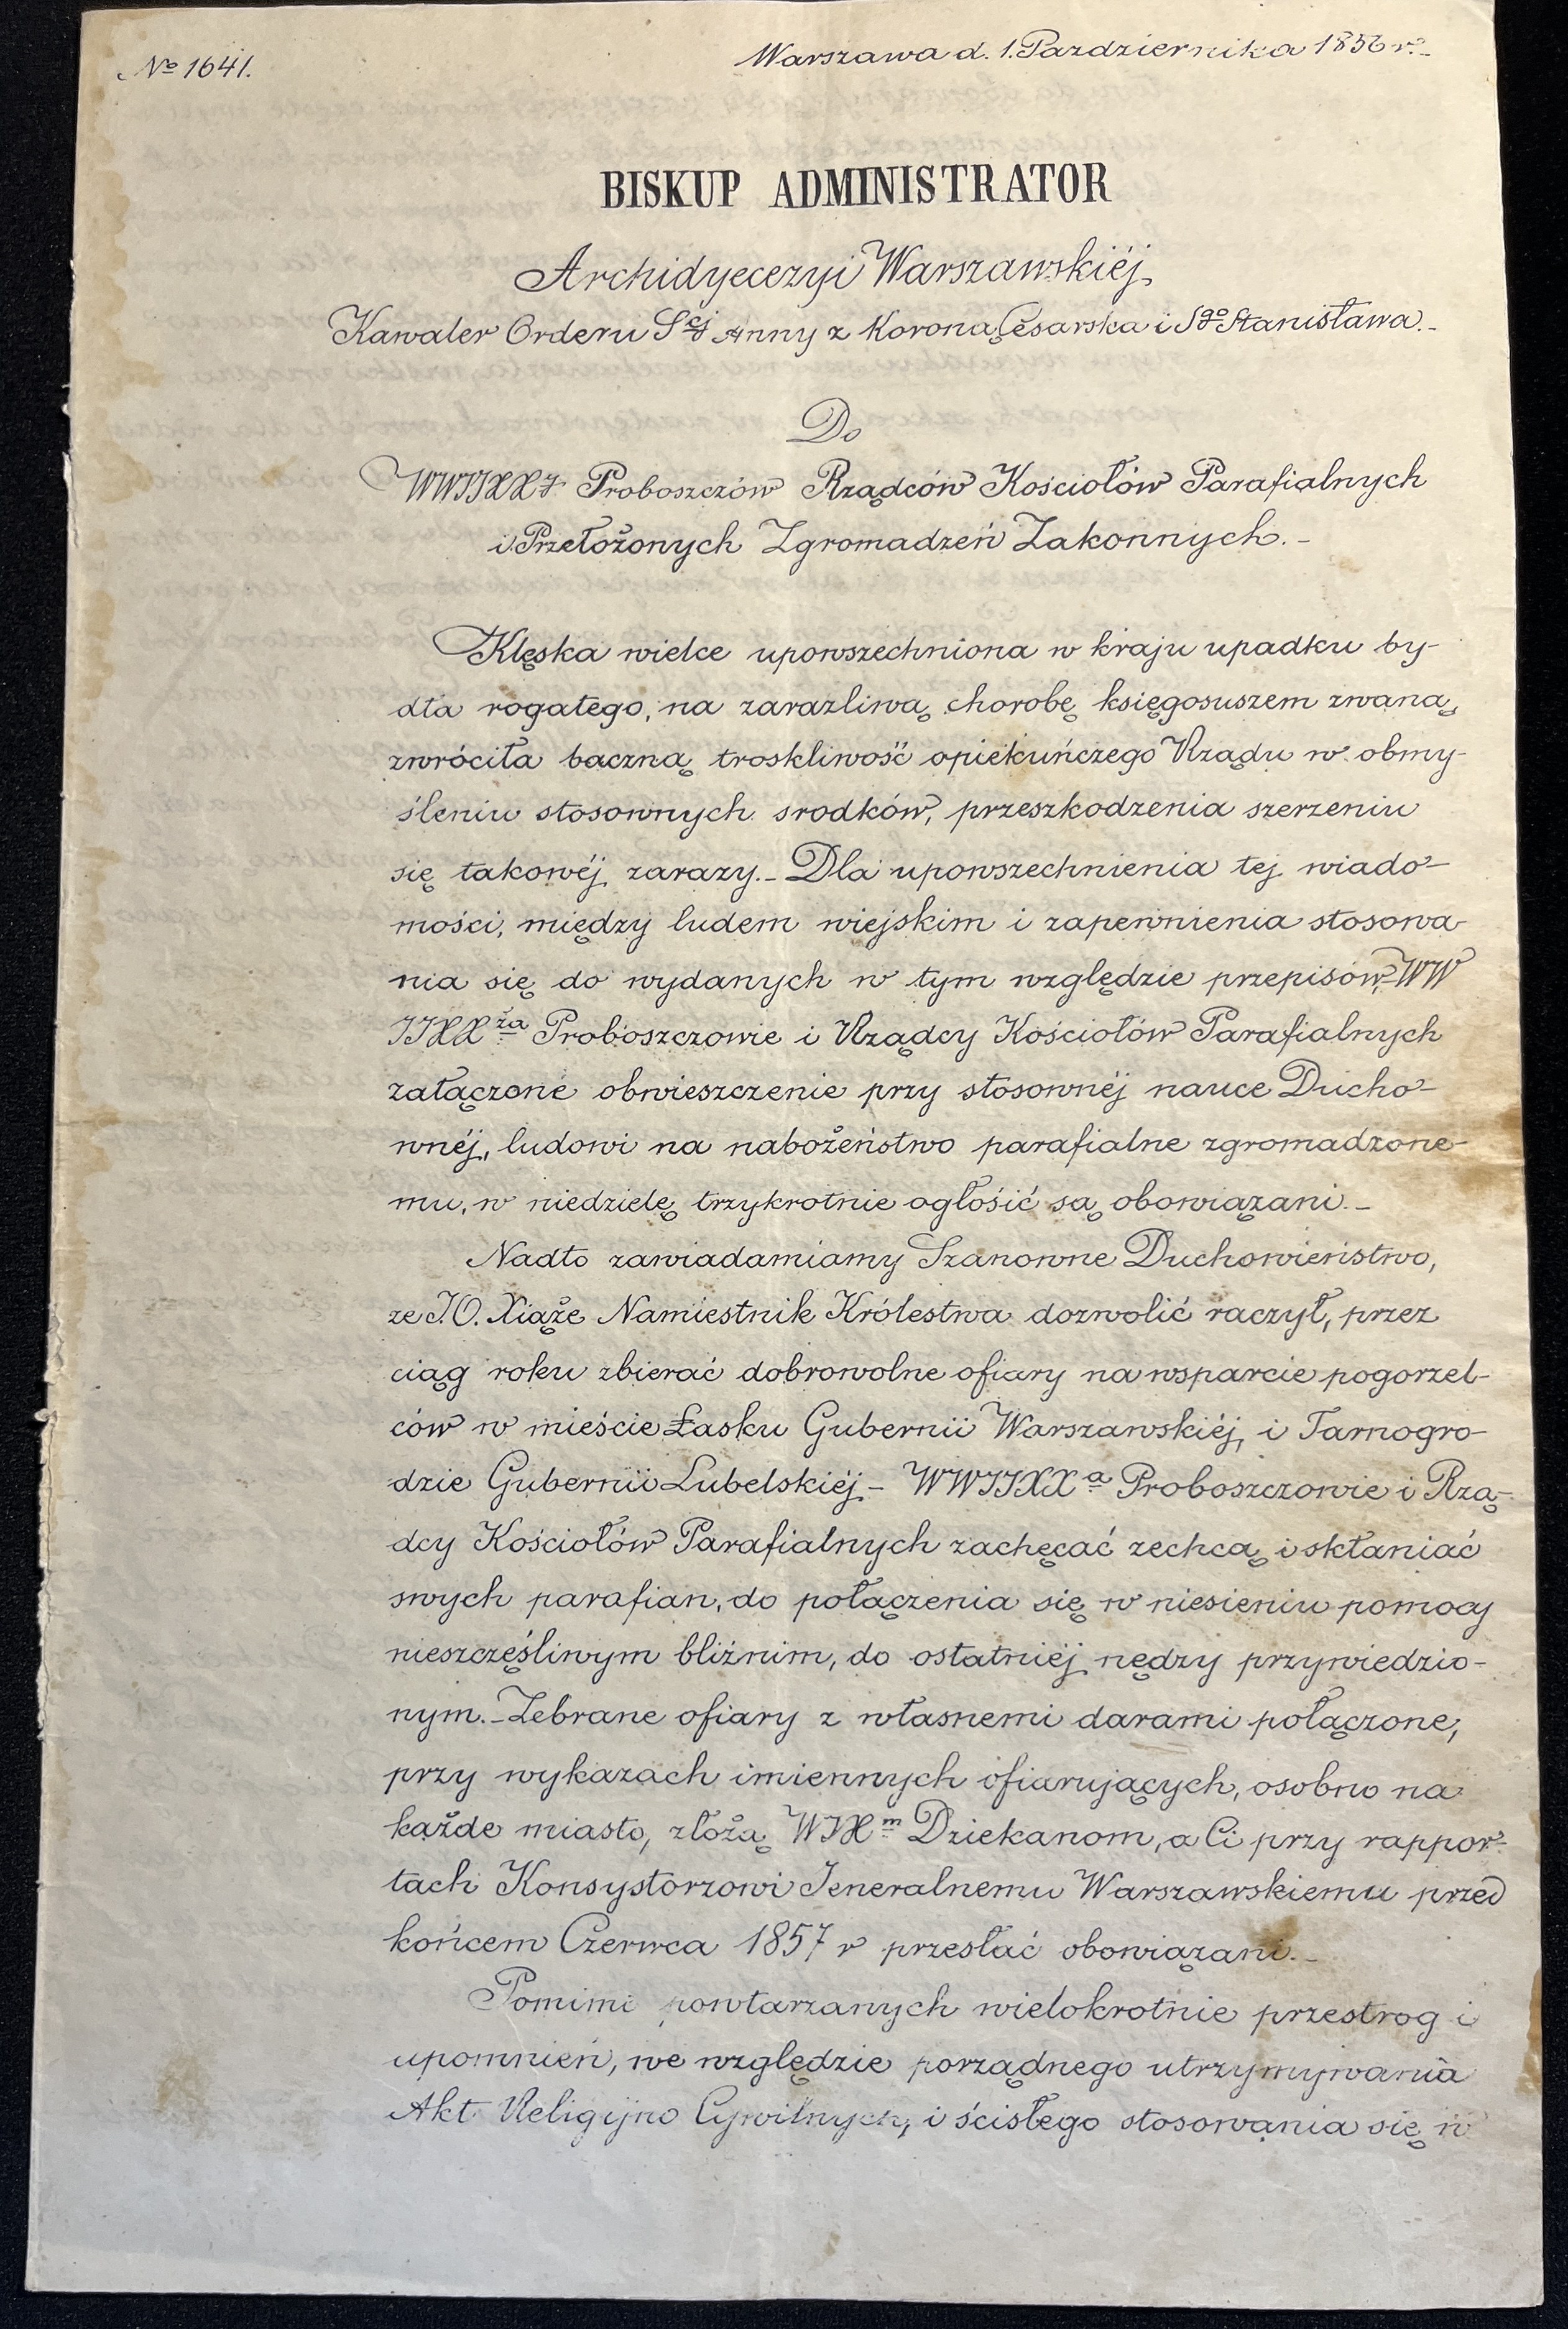 № 1641.
Warszawa d. 1. Pazdziernika 1856 r.
BISKUP ADMINISTRATOR
Archidyecezyi Warszawskiéj
Kawaler Orderu Sej Anny z Koroną Cesarska i Sgo Stanisława.
Do
WWJJXX Proboszczów Rządców Kościołów Parafialnych
i Przełożonych Zgromadzeń Zakonnych.
Klęska wielce upowszechniona w kraju upadku by-
dła rogatego, na zarazliwą chorobę księgosuszem zwaną,
zwróciła baczną troskliwość opiekuńczego Rządu w obmy-
śleniu stosownych srodków, przeszkodzenia szerzeniu
się takowéj zarazy. Dla upowszechnienia tej wiado-
mości, między ludem wiejskim i zapewnienia stosowa-
nia się do wydanych w tym względzie przepisów, WW
JJXXża Proboszczowie i Rządcy Kościołów Parafialnych
załączone obwieszczenie przy stosownéj nauce Ducho-
wnéj, ludowi na nabożeństwo parafialne zgromadzone-
mu, w niedzielę trzykrotnie ogłosić są obowiązani.
Nadto zawiadamiamy Szanowne Duchowieństwo,
ze J.O. Xiąże Namiestnik Królestwa dozwolić raczył, przez
ciąg roku zbierać dobrowolne ofiary na wsparcie pogorzel-
ców w mieście Łasku Gubernii Warszawskiéj, i Tarnogro-
dzie Gubernii Lubelskiéj - WWJJXXa Proboszczowie i Rzą-
dcy Kościołów Parafialnych zachęcać zechcą i skłaniać
swych parafian, do połączenia się w niesieniu pomocy
nieszczęśliwym bliźnim, do ostatniéj nędzy przywiedzio-
nym. Zebrane ofiary z własnemi darami połączone,
przy wykazach imiennych ofiarujących, osobno na
każde miasto, złożą WJXm Dziekanom, a Ci przy rappor-
tach Konsystorzowi Jeneralnemu Warszawskiemu przed
końcem Czerwca 1857 r przesłać obowiązani.
Pomimo powtarzanych wielokrotnie przestrog i
upomnień, we względzie porządnego utrzymywania
Akt Religijno Cywilnych, i ścisłego stosowania się w